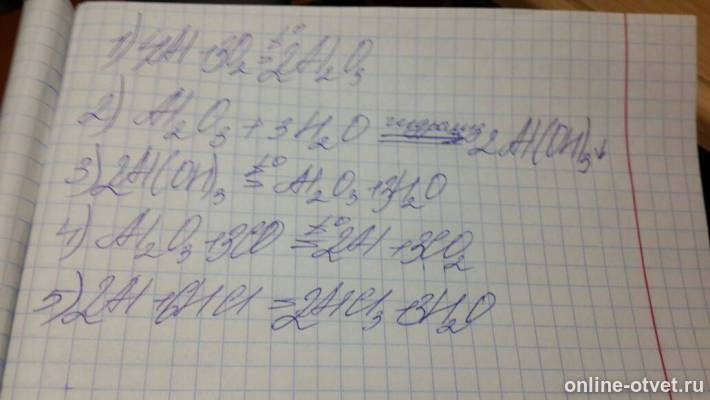 1) 4Al + 3O₂ =t° 2Al₂O₃
2) Al₂O₃ + 3H₂O гидролиз 2Al(OH)₃↓
3) 2Al(OH)₃ =t° Al₂O₃ + 3H₂O
4) Al₂O₃ + 3CO =t° 2Al + 3CO₂
5) 2Al + 6HCl = 2AlCl₃ + 3H₂O
online-otvet.ru